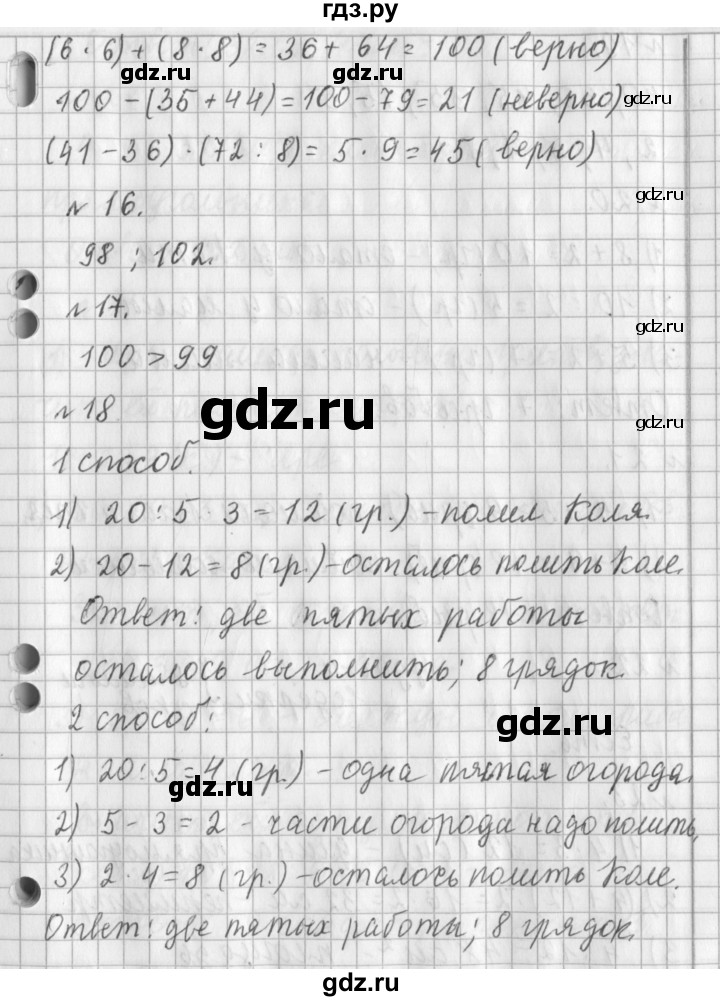 гдз.ру
(6 · 6) + (8 · 8) = 36 + 64 = 100 (верно)
gdz.ru gdz.ru
100 - (35 + 44) = 100 - 79 = 21 (неверно)
gdz.ru
(41 - 36) · (72 : 8) = 5 · 9 = 45 (верно)
gdz.ru
№ 16.
98 ; 102.
№ 17.
gdz.ru
100 > 99
gdz.ru
№ 18
gdz.ru
1 способ.
1) 20 : 5 · 3 = 12 (гр.) - полил Коля.
2) 20 - 12 = 8 (гр.) - осталось полить Коле.
Ответ: две пятых работы
осталось выполнить; 8 грядок.
2 способ:
gdz.ru
1) 20 : 5 = 4 (гр.) - одна пятая огорода.
gdz.ru
2) 5 - 3 = 2 - части огорода надо полить,
3) 2 · 4 = 8 (гр.) - осталось полить Коле.
Ответ: две пятых работы; 8 грядок.
gdz.ru